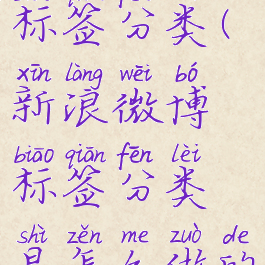 标签分类(
xīn làng wēi bó
新浪微博
biāo qiān fēn lèi
标签分类
shì zěn me zuò de
是怎么做的